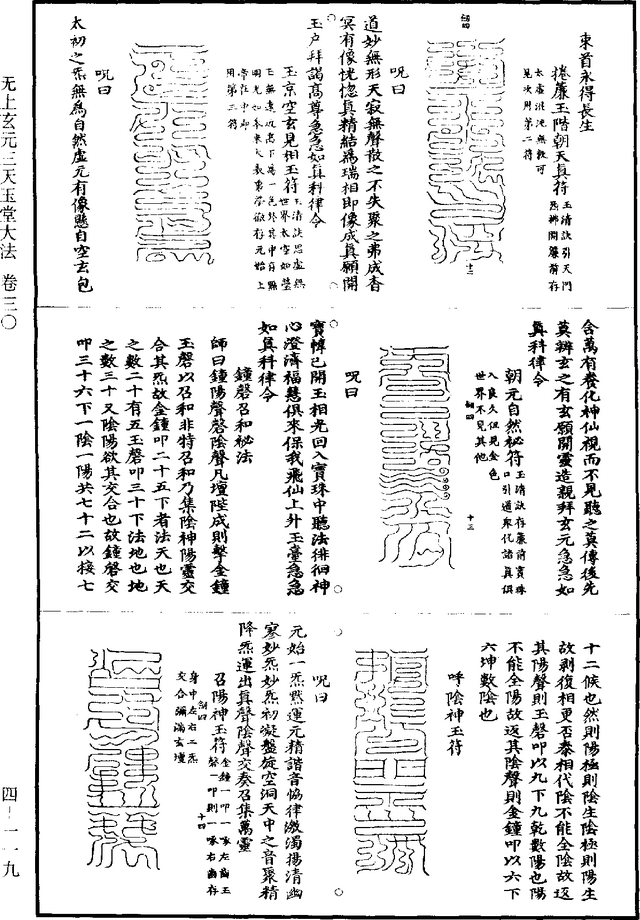 東首永得長生
捲簾玉階朝天真符
玉清訣引天門
炁辨開簾前存
太虛混沌無較可
見次用第二符
制四
十二
呪曰
道妙無形天寂無聲散之不失聚之弗成杳
冥有像恍惚真精結為瑞相即像成真願開
玉戶拜謁高尊急急如真科律令
玉京空玄見相玉符
玉清訣思虛無
世界太空如瑩
用第三符
呪曰
太初之炁無為自然虛元有像懸自空玄包
含萬有養化神仙視而不見聽之莫傳後先
莫辨玄之有玄願開靈造親拜玄元急急如
真科律令
朝元自然秘符
玉清訣存簾前寶珠
口引道炁化諸真俱
入良久但見金色
世界不見其他
制四
十三
呪曰
寶幃已開玉相光回入寶珠中聽法徘徊神
心澄濟福慧俱來保我飛仙上升玉臺急急
如真科律令
鐘磬召和秘法
師曰鐘陽聲磬陰聲凡壇陛成則擊金鐘
玉磬以召和非特召和乃集陰神陽靈交
合其炁故金鐘叩二十五下者法天也天
之數二十有五玉磬叩三十下法地也地
之數三十又陰陽欲其交合也故鐘磬交
叩三十六下一陰一陽共七十二以接七
十二候也然則陽極則陰生陰極則陽生
故剥復相更否泰相代陰不能全陰故返
其陽聲則玉磬叩以九下九乾數陽也陽
不能全陽故返其陰聲則金鐘叩以六下
六坤數陰也
呼陰神玉符
呪曰
元始一炁黙運元精諧音恊律激濁揚清幽
寥妙炁妙炁初凝盤旋空洞天中之音聚精
降炁運出真聲陰聲交奏召集萬靈
召陽神玉符
金鐘一叩一啄左齒玉
磬一叩則一啄右齒存
身中左右二炁
交合彌滿玄壇
制四
十四
无上玄元三天玉堂大法 卷三〇
四—一一九